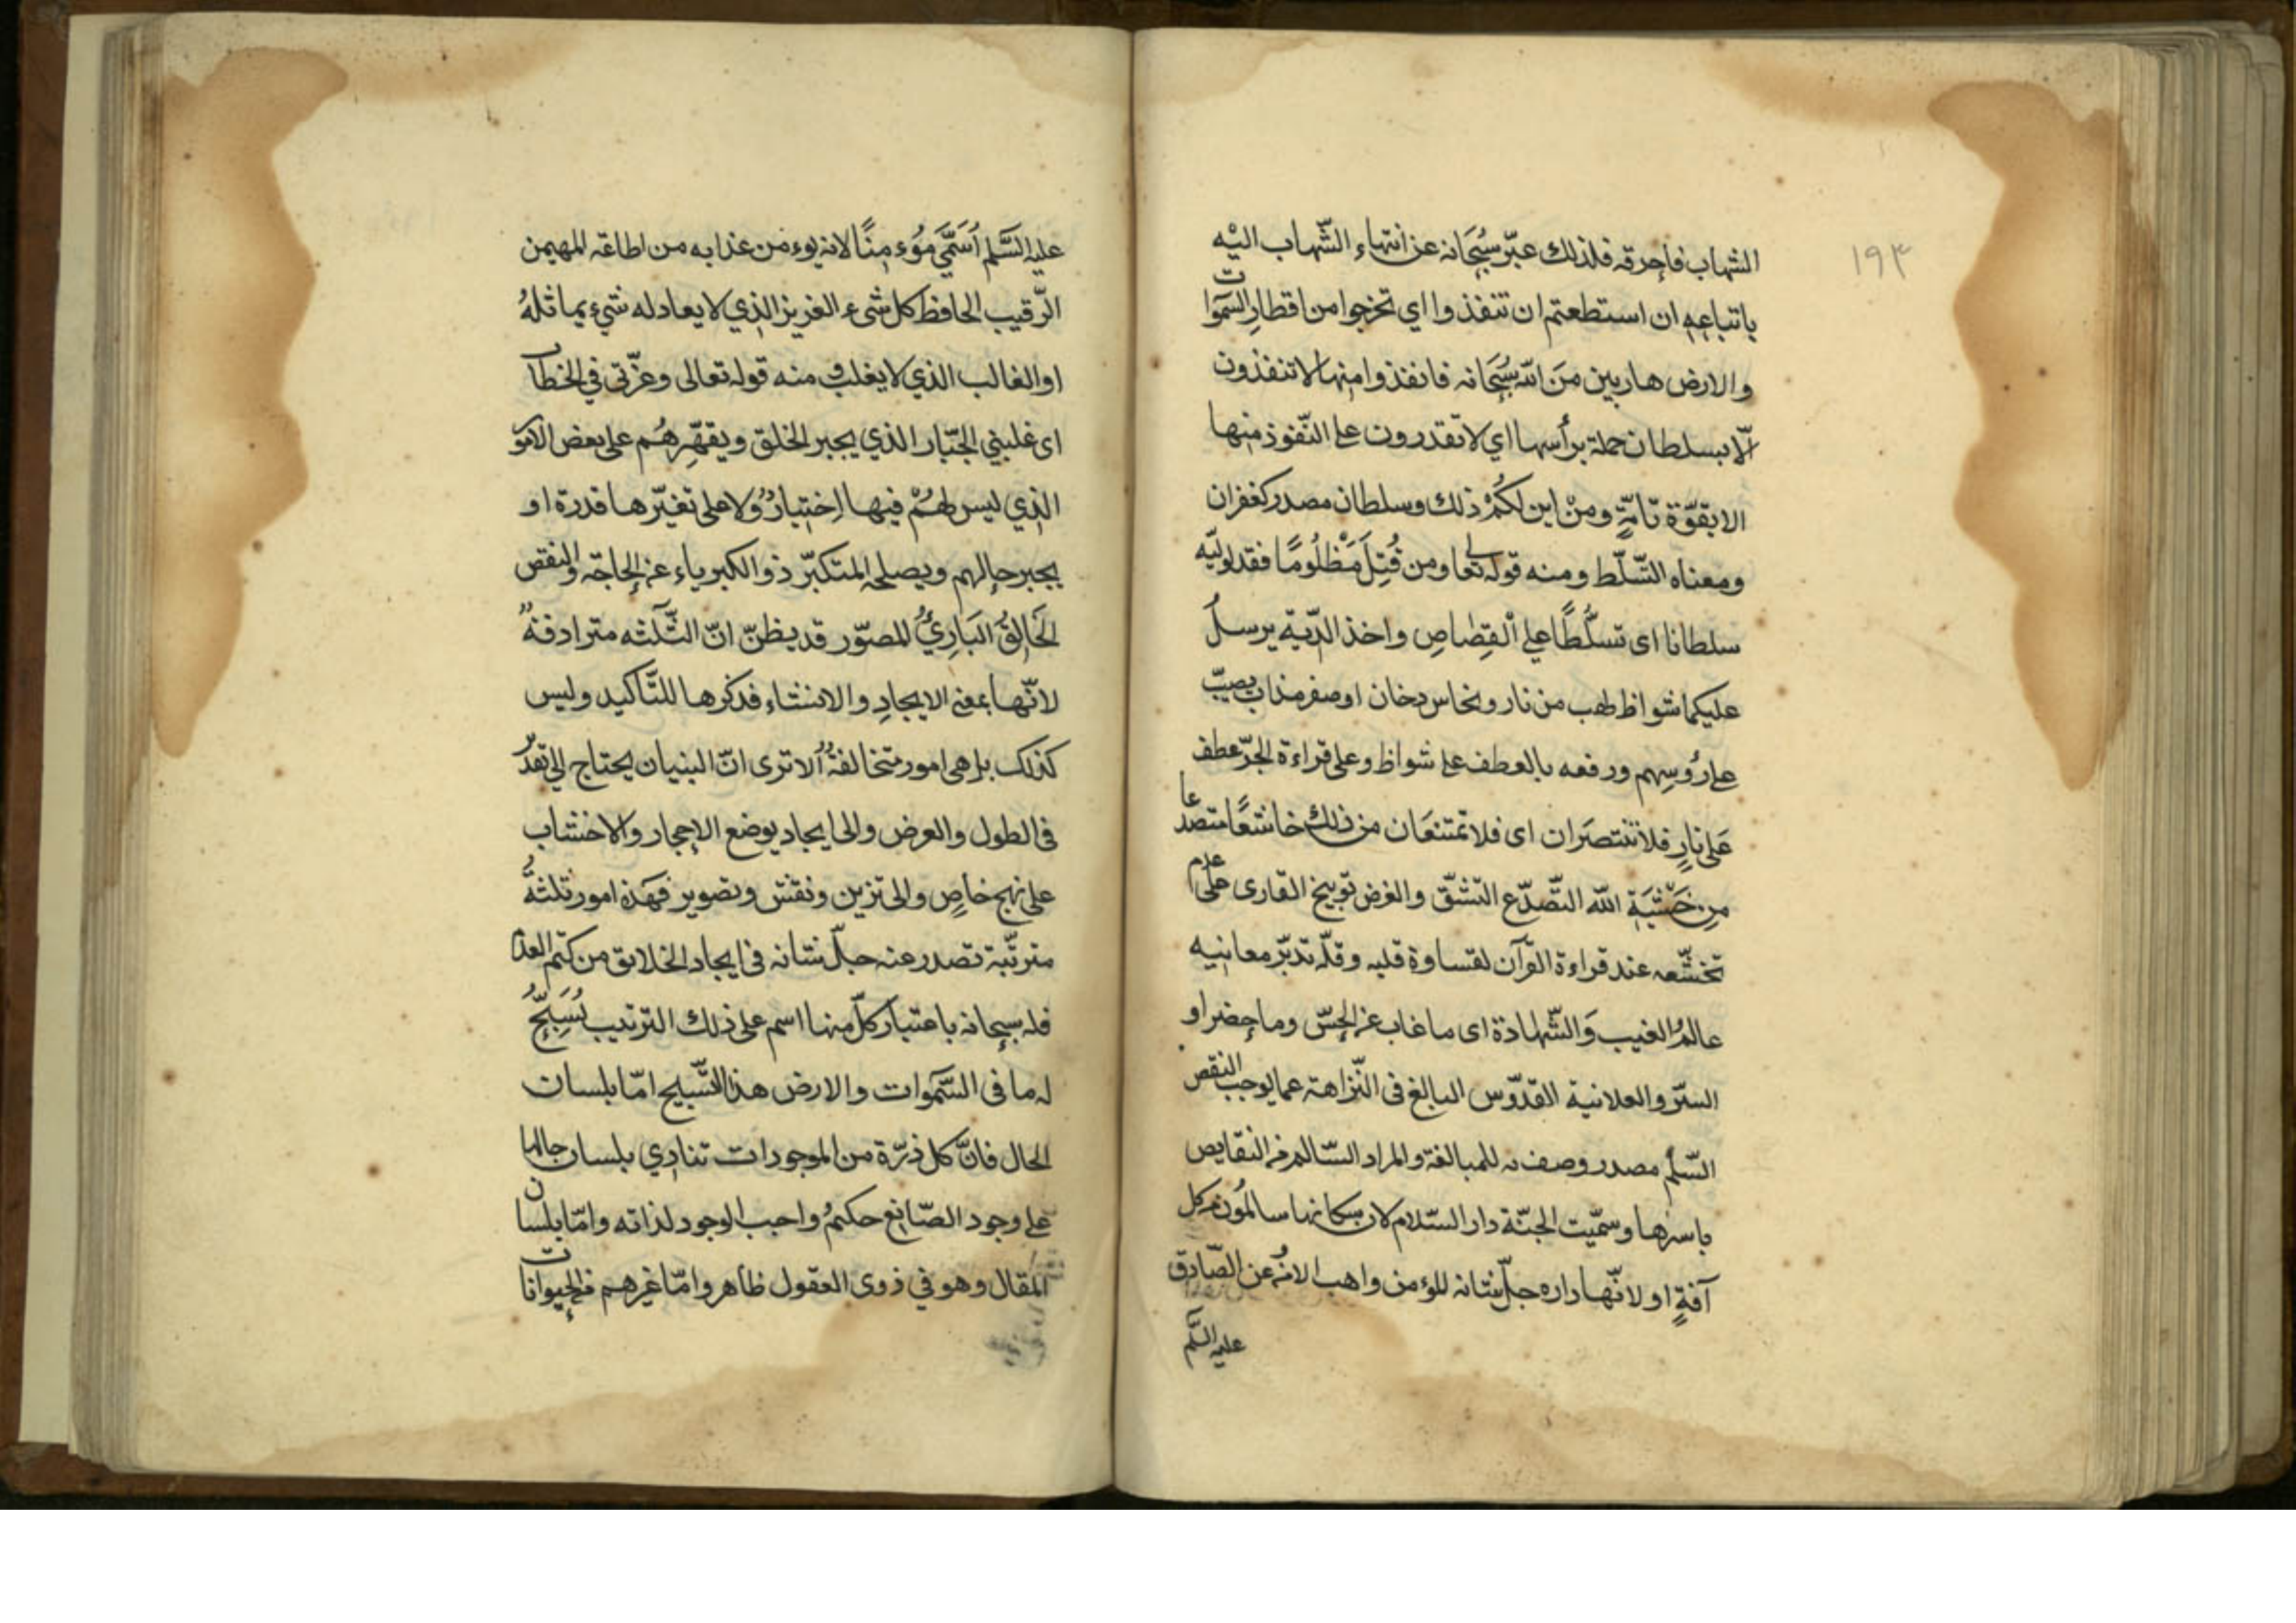 ١٩٣
الشهاب فاحرقه فلذلك عبّر سُبحَانه عن انتهاء الشّهاب اليْه
باتباعهِ ان استطعتم ان تنفذوا اي تخرجوا من اقطارِ السّموات
والارض هاربين منَ اللّه سُبحَانه فانفذوا منها لا تنفذون
الّا بسلطان جملة برأسها اي لا تقدرون على النّفوذ منها
الا بقوّة تامّةٍ ومنْ اين لكُمْ ذلك وسلطان مصدر كغفران
ومعناه التّسلّط ومنه قوله تعالى ومن قُتِلَ مَظْلُومًا فقد لوليّه
سلطانا اى تسلُّطًا على الْقِصَاصِ واخذ الدّية يرسلُ
عليكما شواظ لهب من نار ونحاس دخان او صفر مذاب يصبّ
على رؤسِهم ورفعه بالعطف على شواظ وعلى قراءة الجرّ عطف
عَلى نارٍ فلا تنتصَران اى فلا تمتنعَان من ذلك خاشعًا متصدّعا
مِن خَشْيَةِ اللّه التّصدّع التشقّق والغرض توبيخ القارى على عدم
تخشّعه عند قراءة القرآن لقساوة قلبه وقلّة تدبّر معانيه
عالمُ الغيب وَالشّهادة اى ما غاب عن الحسّ وما حضر او
السّرّ والعلانية القدّوس البالغ فى النّزاهة عما يوجب النقص
السّلم مصدر وصف به للمبالغة والمراد السّالم من النقايص
باسرها وسمّيت الجنّة دار السّلام لان سكانها سالمُون من كل
آفةٍ او لانّها داره جلّ شانه المؤمن واهب الامن عن الصّادق
عليه السّلم
عليه السَّلم اُسَمّيَ مُؤمِنًا لانه يومن من عذابه من اطاعه المهيمن
الرّقيب الحافظ كل شىء العزيز الذي لا يعادله شيء يماثلهُ
او الغالب الذي لا يغلب ومنه قوله تعالى وعزّنى في الخطاب
اى غلبني الجبّار الذي يجبر الخلق ويقهّرهُم على بعض الامور
الذي ليس لهُمْ فيها اِختيارٌ ولا على تغيّرها قدرة او
يجبر حالهم ويصلحه المتكبّر ذو الكبرياء عن الحاجة والنقص
الخَالِقُ البَارِئُ المصوّر قد يظنّ انّ الثّلثه مترادفةٌ
لانّها بمعنى الايجادِ والانشاء فذكرها للتّأكيد وليس
كذلك بل هى امور متخالفةٌ ألا ترى انّ البنيان يحتاج الى تقدير
فى الطول والعرض والى ايجاد بوضع الاحجار والاخشاب
على نهج خاصٍ والى تزين ونقش وتصوير فهَذه امور ثلثةٌ
مترتّبة تصدر عنه جلّ شانه فى ايجاد الخلايق من كتم العدم
فله سبحانه باعتبار كلّ منها اسم على ذلك الترتيب يُسَبِّحُ
له ما فى السّموات والارض هذا التّسبيح امّا بلسان
الحال فانّ كل ذرّة من الموجودات تنادِي بلسان حالها
على وجود الصّانِع حكيمُ واجب الوجود لذاته وامّا بلسان
المقال وهو في ذوى العقول ظاهر وامّا غيرهم من الحيوانات